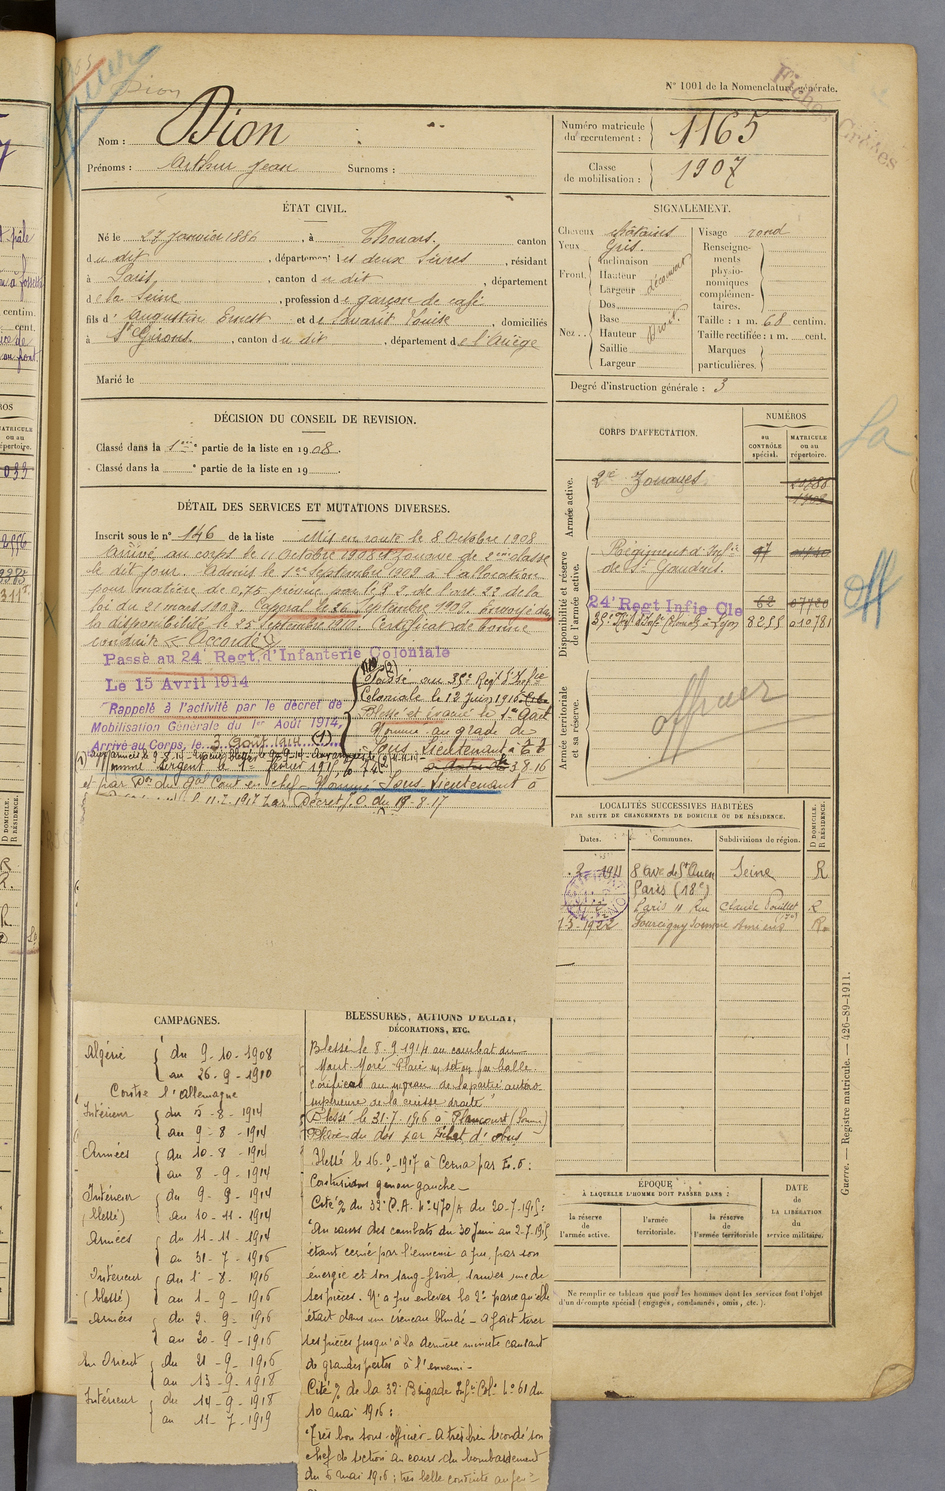 N° 1001 de la Nomenclature générale.
Fiches Croisées
Dion
Nom : Dion
Prénoms : Arthur Jean Surnoms :
Numéro matricule du recrutement : 1165
Classe de mobilisation : 1907
ÉTAT CIVIL.
Né le 27 janvier 1886, à Thouars, canton
du dit, département des deux Sèvres, résidant
à Paris, canton du dit, département
de la Seine, profession de garçon de café
fils d'Augustin Ernest et de Louise, domiciliés
à St Girons, canton du dit, département de l'Ariège
Marié le
SIGNALEMENT.
Cheveux châtains
Yeux Gris.
Front. Inclinaison
Hauteur
Largeur
découvert
Nez. Dos
Base
Hauteur
Saillie
Largeur
Droit.
Visage rond
Renseignements physionomiques complémentaires.
Taille : 1 m. 68 centim.
Taille rectifiée : 1 m. cent.
Marques particulières.
Degré d'instruction générale : 3
DÉCISION DU CONSEIL DE REVISION.
Classé dans la 1ère partie de la liste en 1908.
Classé dans la partie de la liste en 19
DÉTAIL DES SERVICES ET MUTATIONS DIVERSES.
Inscrit sous le n° 146 de la liste Mis en route le 8 Octobre 1908
Arrivé au corps le 11 Octobre 1908 et Zouave de 2ème classe
le dit jour. Admis le 1er Septembre 1909 à l'allocation
pour matière de 0,75 prévue par le § 2 de l'art. 22 de la
loi du 21 mars 1909. Caporal le 26 Septembre 1909. Envoyé dans
la disponibilité le 25 Septembre 1910. Certificat de bonne
conduite « Accordé »
Passé au 24 Regt. d'Infanterie Coloniale
Le 15 Avril 1914
Rappelé à l'activité par le décret de
Mobilisation Générale du 1er Août 1914,
Arrivé au Corps, le 3 Août 1914 (1)
(2) Passé au 35e Regt d'Infie
Coloniale le 12 Juin 1916
Blessé et évacué le 1er Août
Nommé au grade de
Sous Lieutenant à T.T.
à dater du 3.8.16
nommé Sergent le 1er février 1915
et par Don du Gal Comt en chef Nommé Sous Lieutenant à
11.7.1917 par (Décret) J.O. du 18-8-17
CORPS D'AFFECTATION.
NUMÉROS
au CONTRÔLE spécial.
MATRICULE ou au répertoire.
Armée active.
2e Zouaves
Disponibilité et réserve de l'armée active.
Régiment d'Infie
de St Gaudens.
24 Regt Infie Cle
62
07720
38e Regt Infie Clonale à Lyon 8255 010781
Armée territoriale et sa réserve.
officier
LOCALITÉS SUCCESSIVES HABITÉES
PAR SUITE DE CHANGEMENTS DE DOMICILE OU DE RÉSIDENCE.
Dates. Communes. Subdivisions de région. D DOMICILE. R RÉSIDENCE.
2-1911 8 Ave de St Ouen Seine R
Paris (18e)
Paris 11 Rue Claude Pouillet R
13-1922 Fourcigny Somme Amiens R
ÉPOQUE
À LAQUELLE L'HOMME DOIT PASSER DANS :
la réserve de l'armée active.
l'armée territoriale.
la réserve de l'armée territoriale
DATE de LA LIBÉRATION du service militaire.
Ne remplir ce tableau que pour les hommes dont les services font l'objet
d'un décompte spécial (engagés, condamnés, omis, etc.).
Guerre. — Registre matricule. — 426-89-1911.
CAMPAGNES.
Algérie du 9-10-1908
au 26-9-1910
Contre l'Allemagne
Intérieur du 5-8-1914
au 9-8-1914
Armées du 10-8-1914
au 8-9-1914
Intérieur du 9-9-1914
(blessé) au 10-11-1914
Armées du 11-11-1914
au 31-7-1916
Intérieur du 1-8-1916
(blessé) au 1-9-1916
Armées du 2-9-1916
au 20-9-1916
En Orient du 21-9-1916
au 13-9-1918
Intérieur du 14-9-1918
au 11-7-1919
BLESSURES, ACTIONS D'ÉCLAT,
DÉCORATIONS, ETC.
Blessé le 8-9-1914 au combat du
Mont-Moré Plaie en séton par balle
orifices au niveau de la partie antéro
supérieure de la cuisse droite
Blessé le 31-7-1916 à Flaucourt (Somme)
Plaie du dos par Eclat d'obus
Blessé le 16-9-1917 à Cerna par E.O :
Contusions genou gauche
Cité % du 32e C.A. N° 470/A du 20-7-1915 :
"Au cours des combats du 30 Juin au 2-7-1915
étant cerné par l'ennemi a pu, par son
énergie et son sang-froid, sauver une de
ses pièces. N'a pu enlever la 2e parce qu'elle
était dans un créneau blindé - a fait tirer
ses pièces jusqu'à la dernière minute causant
de grandes pertes à l'ennemi -
Cité % de la 32e Brigade Infie Cole N° 61 du
10 mai 1916 :
"Très bon sous-officier - a très bien secondé son
chef de section au cours du bombardement
du 5 mai 1916 ; très belle conduite au feu